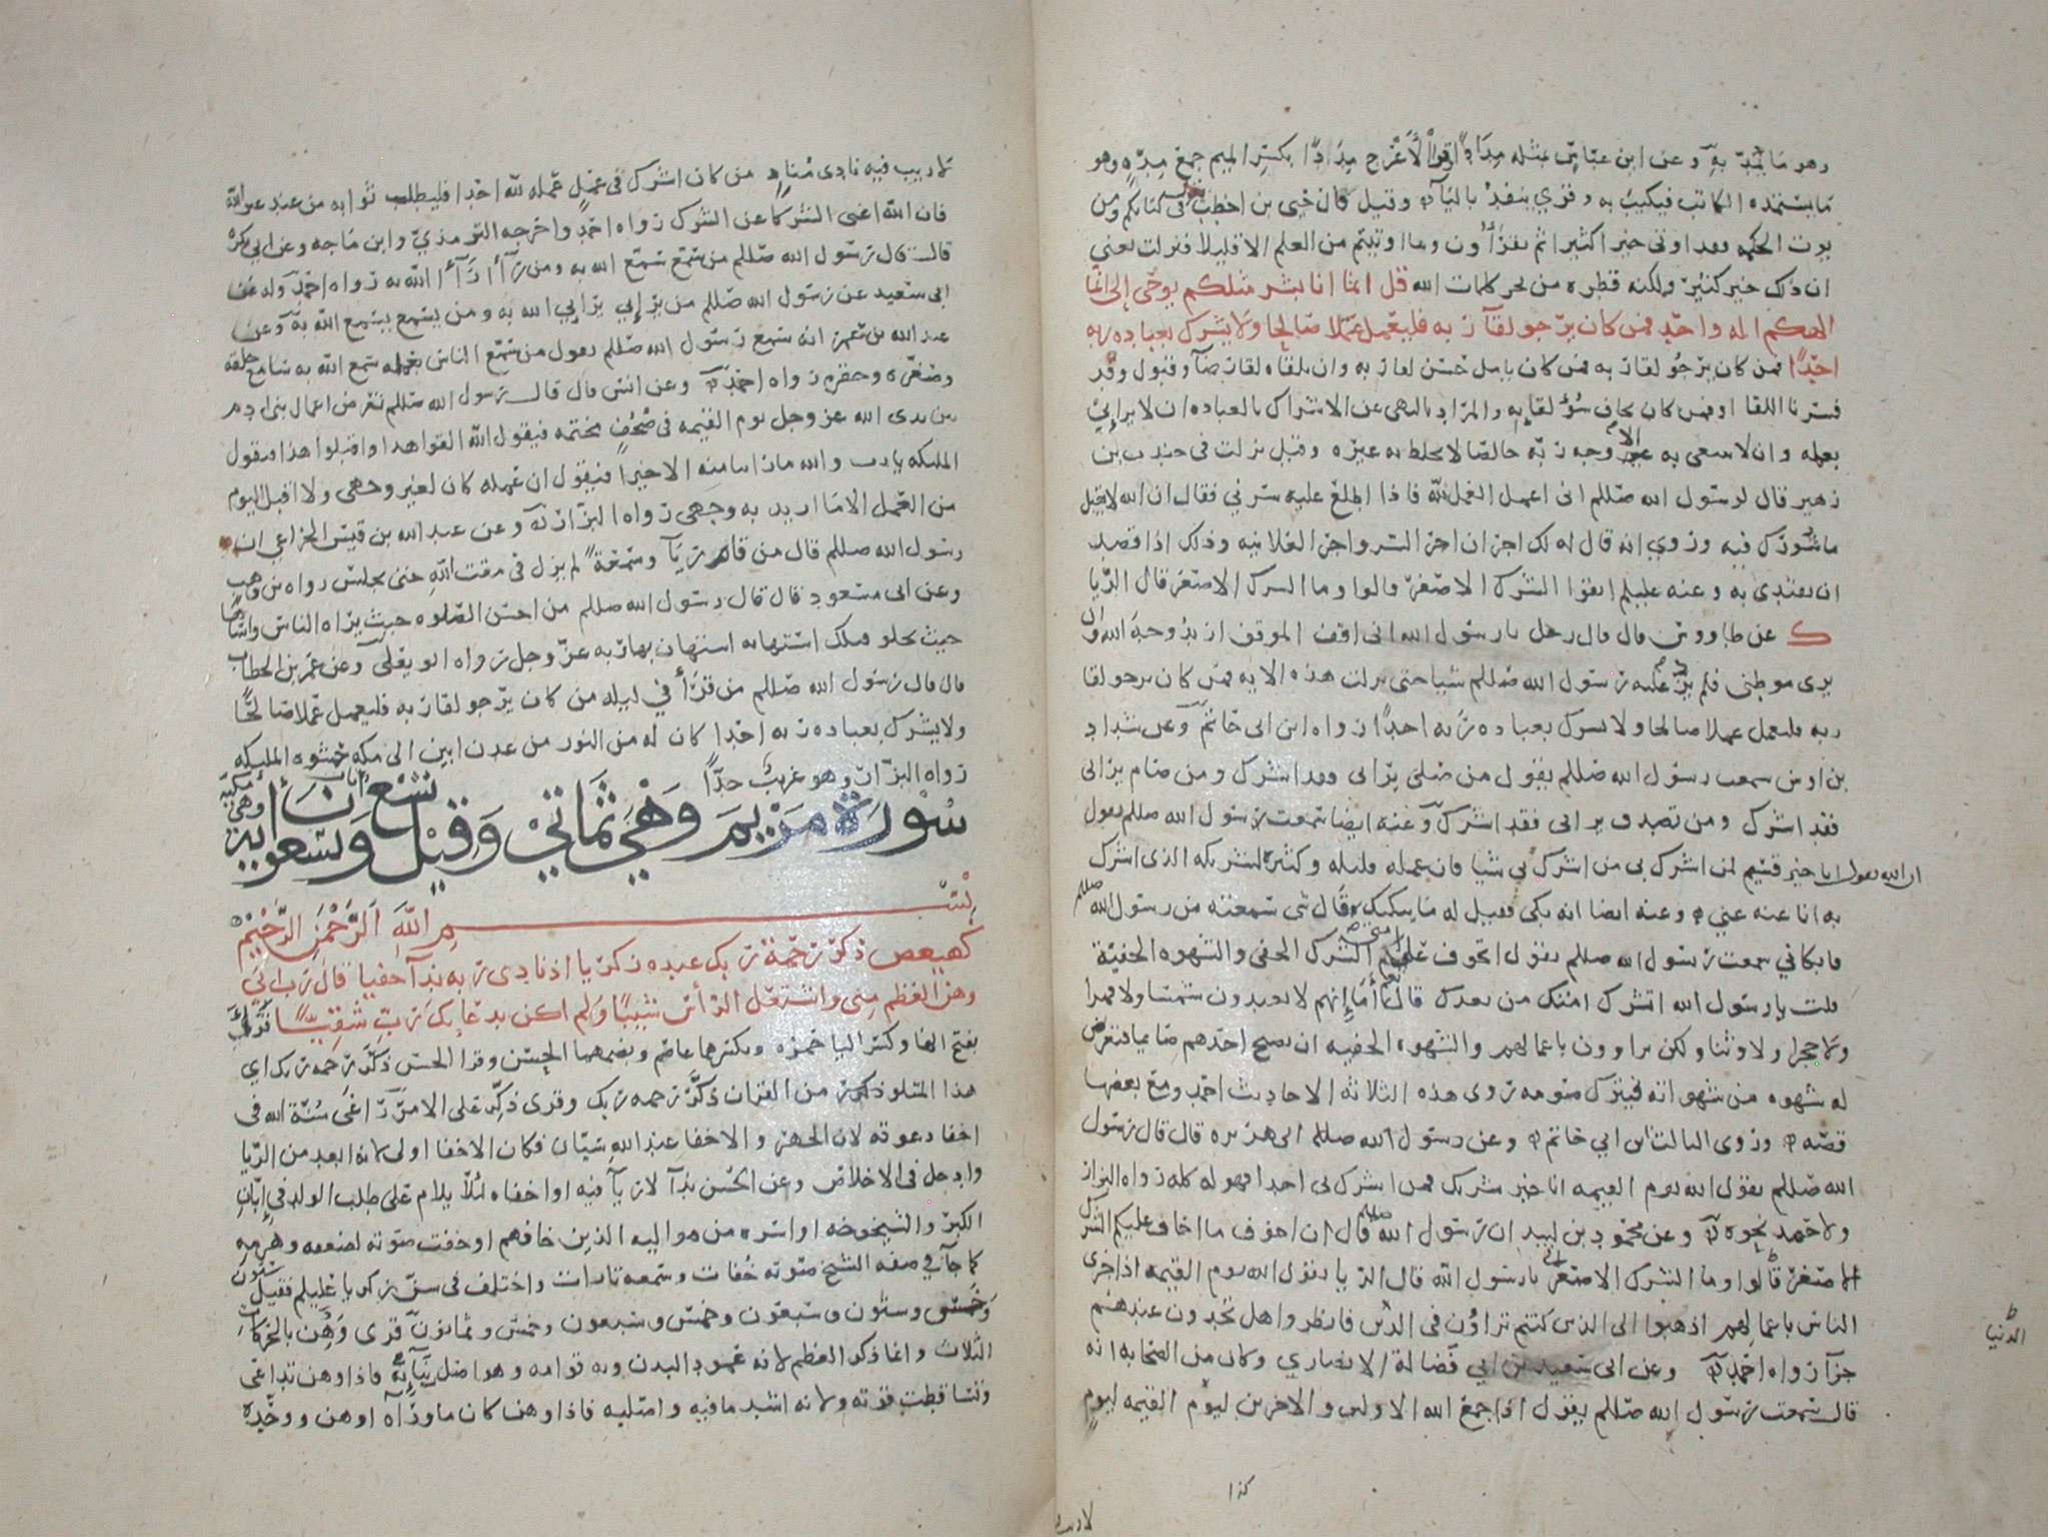 وهو ما يمد به وعن ابن عباس مثله مدادا وقرأ الأعرج مددا بكسر الميم جمع مده وهو
ما يستمده الكاتب فيكتب به وقرئ ينفد باليآ وقيل قال حيى بن اخطب في كتابكم ومن
يوت الحكمه فقد اوتى خيرا كثيرا ثم تقرأون وما اوتيتم من العلم الا قليلا فنزلت يعني
ان ذلك خير كثير ولكنه قطره من بحر كلمات الله قل انما انا بشر مثلكم يوحى إلي انما
الهكم اله واحد فمن كان يرجو لقآ ربه فليعمل عملا صالحا ولا يشرك بعباده ربه
احدا فمن كان يرجو لقا ربه فمن كان يامل حسن لقا ربه وان يلقاه لقا رضا وقبول وقد
فسرنا اللقا او فمن كان يخاف سوء لقائه والمراد بالنهى عن الاشراك بالعباده ان لا يرائي
بعمله وان لا يبتغى به الا وجه ربه خالصا لا يخلط به غيره وقيل نزلت في جندب بن
زهير قال لرسول الله صللم انى اعمل العمل لله فاذا اطلع عليه سرني فقال ان الله لا يقبل
ما شورك فيه وروي انه قال له لك اجران اجر السر واجر العلانيه وذلك اذا قصد
ان يقتدى به وعنه عليلم اتقوا الشرك الاصغر قالوا وما الشرك الاصغر قال الريا
ك عن طاووس قال قال رجل يا رسول الله انى اقف الموقف اريد وجه الله وان
يرى موطنى فلم يرد عليه رسول الله صللم شيا حتى نزلت هذه الايه فمن كان يرجو لقا
ربه فليعمل عملا صالحا ولا يشرك بعباده ربه احدا رواه ابن ابى حاتم وعن شداد
بن اوس سمعت رسول الله صللم يقول من صلى يرائى فقد اشرك ومن صام يرائى
فقد اشرك ومن تصدق يرائى فقد اشرك وعنه ايضا سمعت رسول الله صللم يقول
ان الله يقول انا خير قسيم لمن اشرك بي من اشرك بي شيا فان عمله قليله وكثيره لشريكه الذى اشرك
به انا عنه غني وعنه ايضا انه بكى فقيل له ما يبكيك قال شى سمعته من رسول الله صللم
فابكاني سمعت رسول الله صللم يقول اتخوف على امتي الشرك الخفى والشهوه الخفيه
قلت يا رسول الله اتشرك امتك من بعدك قال نعم أما إنهم لا يعبدون شمسا ولا قمرا
ولا حجرا ولا وثنا ولكن يراوون باعمالهم والشهوه الخفيه ان يصبح احدهم صايما فتعرض
له شهوه من شهواته فيترك صومه روى هذه الثلاثه الاحاديث احمد ومع بعضها
قصه وروى الثالث ابن ابي حاتم وعن رسول الله صللم ابى هريره قال قال رسول
الله صللم يقول الله يوم القيمه انا خير شريك فمن اشرك بى احدا فهو له كله رواه البزار
ولاحمد نحوه وعن محمود بن لبيد ان رسول الله صللم قال ان اخوف ما اخاف عليكم الشرك
الاصغر قالوا وما الشرك الاصغر يا رسول الله قال الريا يقول الله يوم القيمه اذا جزى
الناس باعمالهم اذهبوا الى الذين كنتم تراؤن في الدنيا فانظروا هل تجدون عندهم
الدنيا
جزآ رواه احمد وعن ابى سعيد بن ابي فضالة الانصاري وكان من الصحابه انه
قال سمعت رسول الله صللم يقول اذا جمع الله الاولين والاخرين ليوم القيمه ليوم
كذا
لا ريب
لا ريب فيه نادى مناد من كان اشرك في عمل عمله لله احدا فليطلب ثوابه من عند غير الله
فان الله اغنى الشركا عن الشرك رواه احمد واخرجه الترمذي وابن ماجه وعن ابى بكره
قال قال رسول الله صللم من سمع سمع الله به ومن رآأ رآأ الله به رواه احمد وله عن
ابى سعيد عن رسول الله صللم من يرائي يرائي الله به ومن يسمع يسمع الله به وعن
عبد الله بن عمر انه سمع رسول الله صللم يقول من سمع الناس بعمله سمع الله به سامع خلقه
وصغره وحقره رواه احمد وعن انس قال قال رسول الله صللم تعرض اعمال بنى ادم
بين يدى الله عز وجل يوم القيمه في صحف مختمه فيقول الله القوا هذا واقبلوا هذا فيقول
المليكه يا رب والله ما راينا منه الا خيرا فيقول ان عمله كان لغير وجهى ولا اقبل اليوم
من العمل الا ما اريد به وجهى رواه البزار وعن عبد الله بن قيس الخزاعي ان
رسول الله صللم قال من قام ريآ وسمعة لم يزل في مقت الله حتى يجلس رواه بن وهب
وعن ابى مسعود قال قال رسول الله صللم من احسن الصلوه حيث يراه الناس واساها
حيث يخلو فتلك استهانه استهان بها ربه عز وجل رواه ابو يعلى وعن عمر بن الخطاب
قال قال رسول الله صللم من قرأ في ليله من كان يرجو لقا ربه فليعمل عملا صالحا
ولا يشرك بعباده ربه احدا كان له من النور من عدن ابين الى مكه حشوه المليكه
رواه البزار وهو غريب جدا
سورة مريم وهي ثماني وقيل تسع وتسعون آية وهي مكية
بسم الله الرحمن الرحيم
كهيعص ذكر رحمة ربك عبده زكريا اذ نادى ربه ندآ خفيا قال رب اني
وهن العظم مني واشتعل الرأس شيبا ولم اكن بدعايك رب شقيا
بفتح الها وكسر اليا حمزه وبكسرهما عاصم وبضمهما الحسن وقرا الحسن ذكر رحمه ربك اي
هذا المتلو ذكره من القران ذكر رحمه ربك وقرى ذكر على الامر راعى سنة الله في
اخفا دعوته لان الجهر والاخفا عند الله سيان فكان الاخفا اولى لانه ابعد من الريا
وادخل في الاخلاص وعن الحسن ندآ لا ريآ فيه او اخفاه لئلا يلام على طلب الولد في إبان
الكبر والشيخوخه او اسره من مواليه الذين خافهم او خفت صوته لضعفه وهرمه
كما جآ في صفه الشيخ صوته خفات وسمعه تارات واختلف في سن زكريا عليلم فقيل ستون
وخمس وستون وسبعون وخمس وسبعون وخمس وثمانون قرى وهن بالحركات
الثلاث وانما ذكر العظم لانه عمود البدن وبه قوامه وهو اصل بنائه فاذا وهن تداعى
وتساقطت قوته ولانه اشد ما فيه واصلبه فاذا وهن كان ما ورآه اوهن ووحده